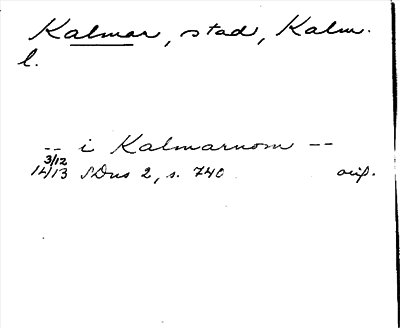 Kalmar, stad, Kalm.
l.
-- i Kalmarnom --
3/12
1413 SDns 2, s. 740 orig.